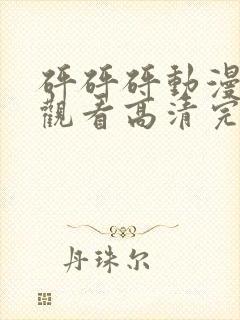 砰砰砰動漫
觀看高清完
丹珠尔